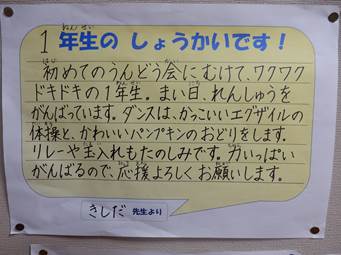 1年生の しょうかいです！
初めてのうんどう会にむけて、ワクワク
ドキドキの1年生。まい日、れんしゅうを
がんばっています。ダンスは、かっこいいエグザイルの
体操と、かわいいパンプキンのおどりをします。
リレーや玉入れもたのしみです。力いっぱい
がんばるので、応援よろしくお願いします。
きしだ 先生より